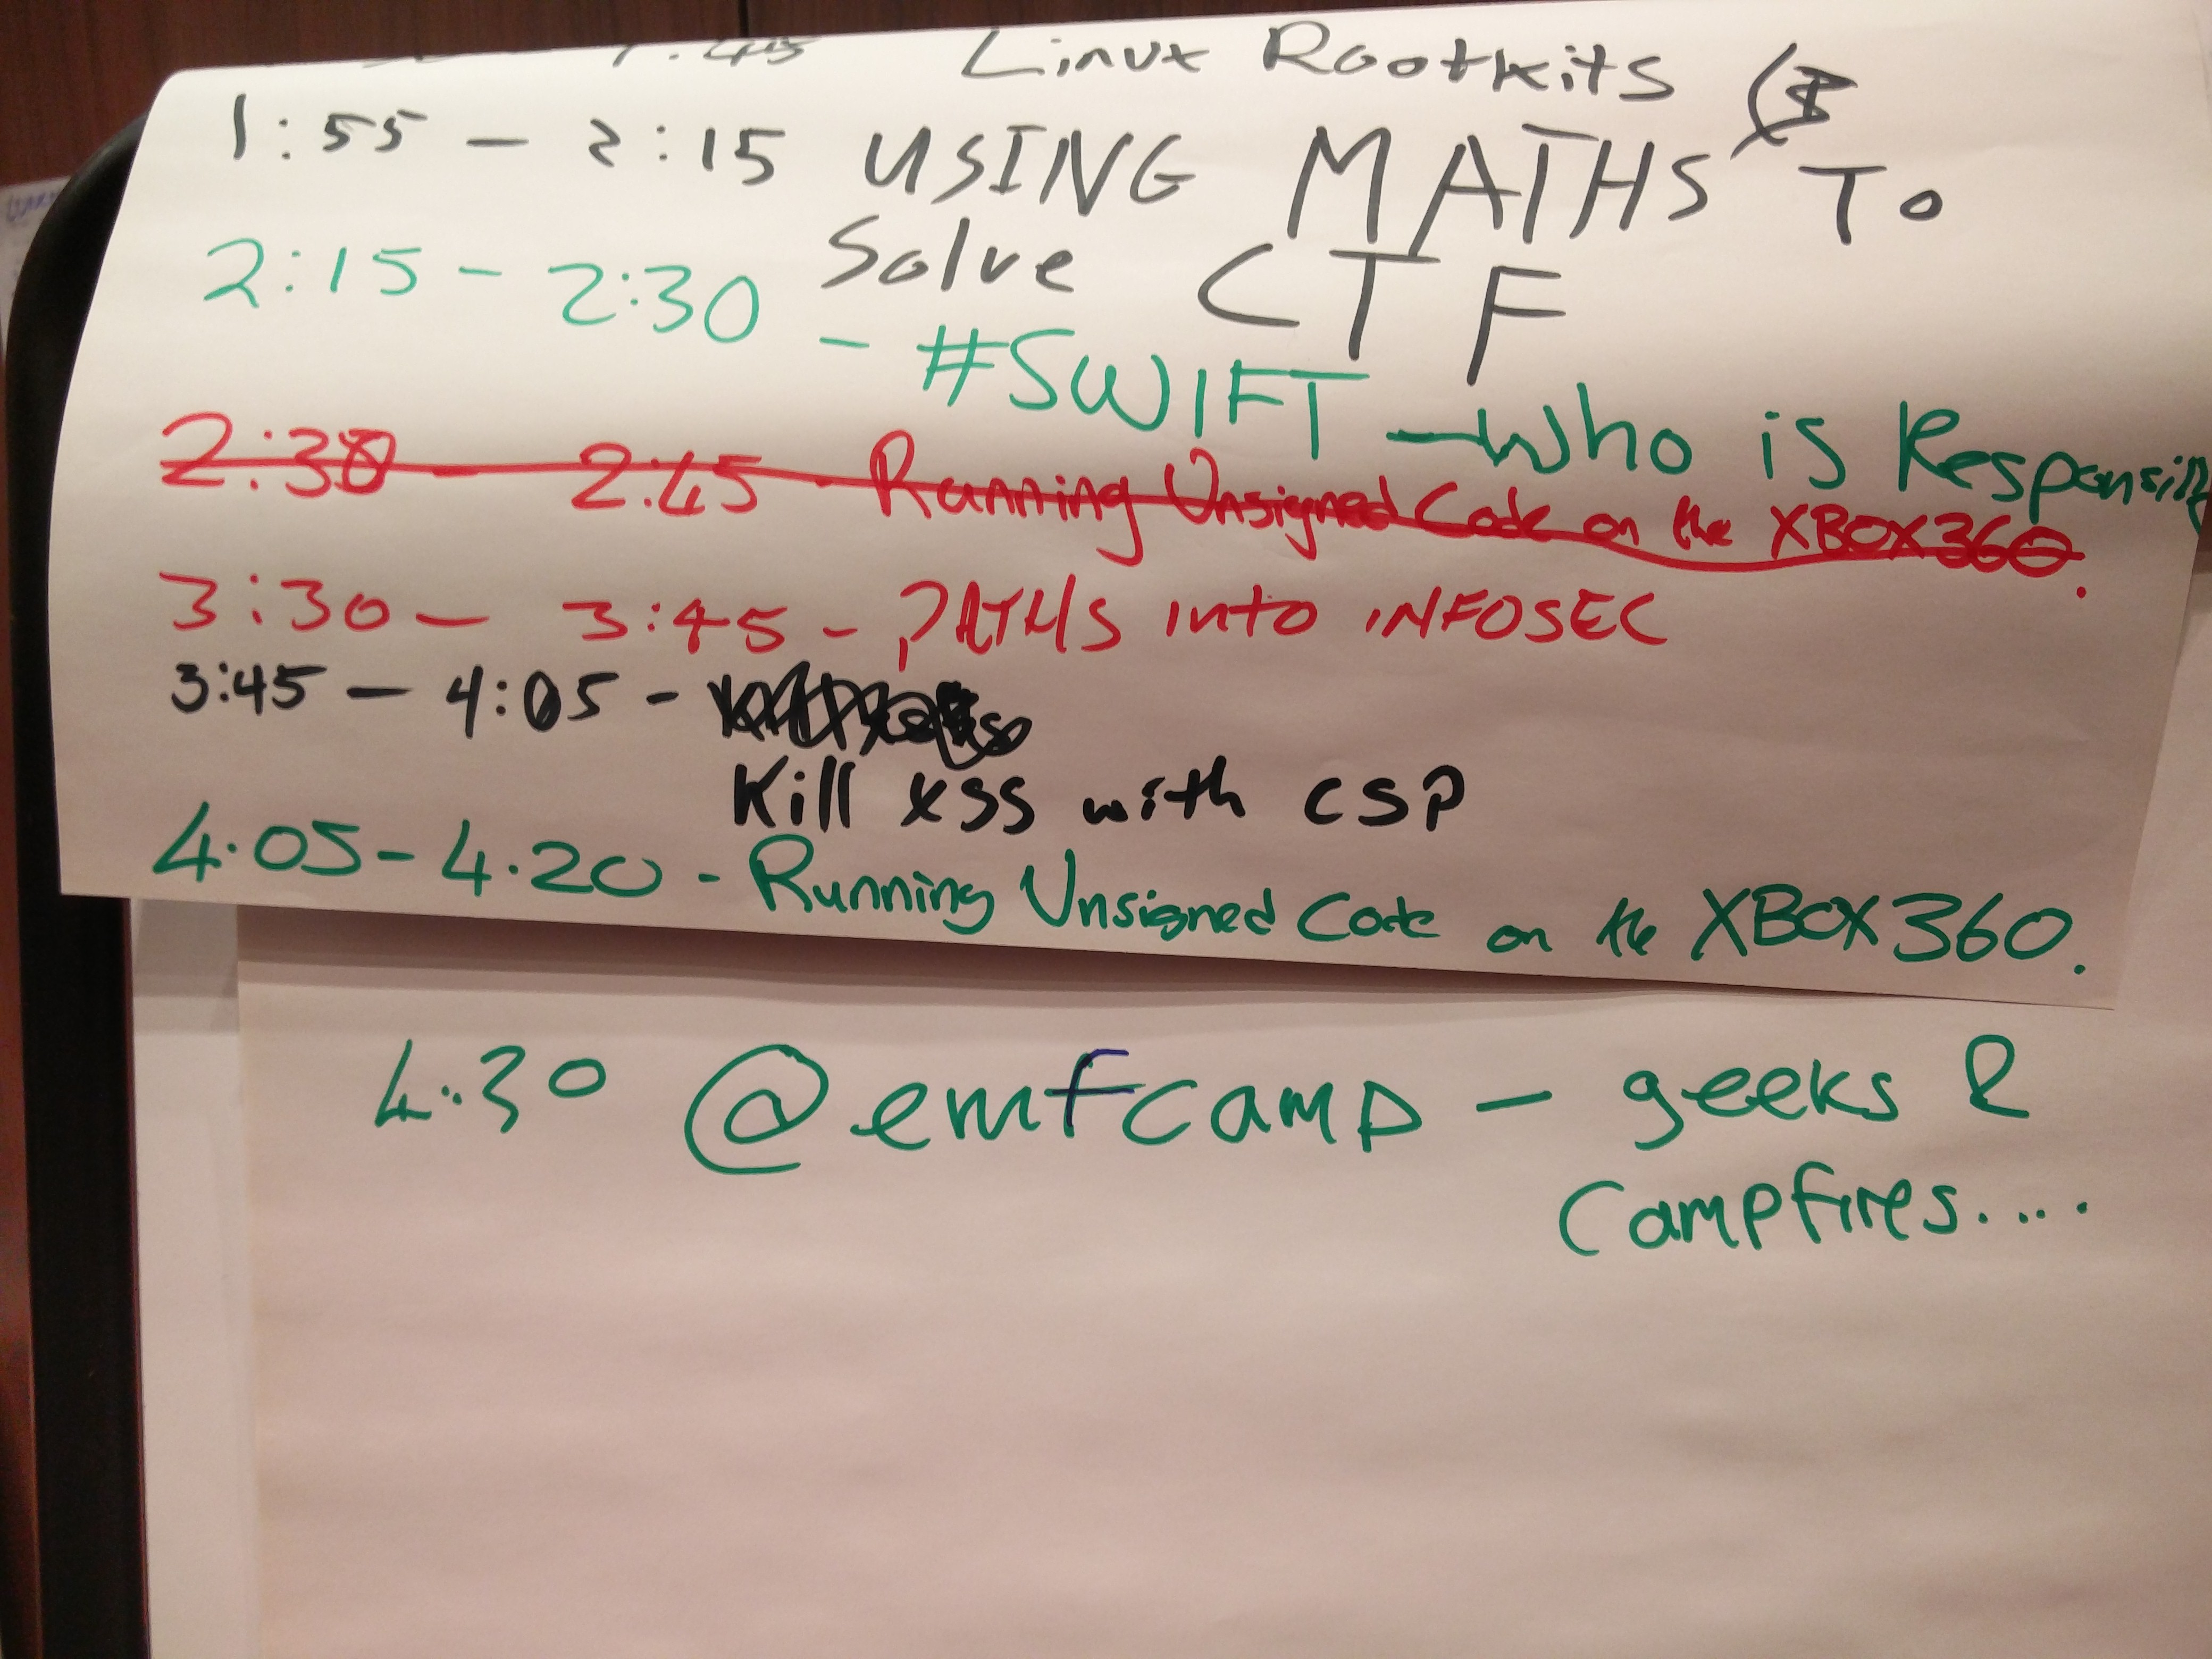 Linux Rootkits
1:55 - 2:15 USING MATHS To
Solve CTF
2:15 - 2:30 - #SWIFT - Who is
2:30 - 2:45 - Running Unsigned Code on the XBOX360.
3:30 - 3:45 - PATHS into iNFOSEC
3:45 - 4:05 -
Kill xss with CSP
4.05 - 4.20 - Running Unsigned Code on the XBOX360.
4:30 @emfcamp - geeks &
Campfires....